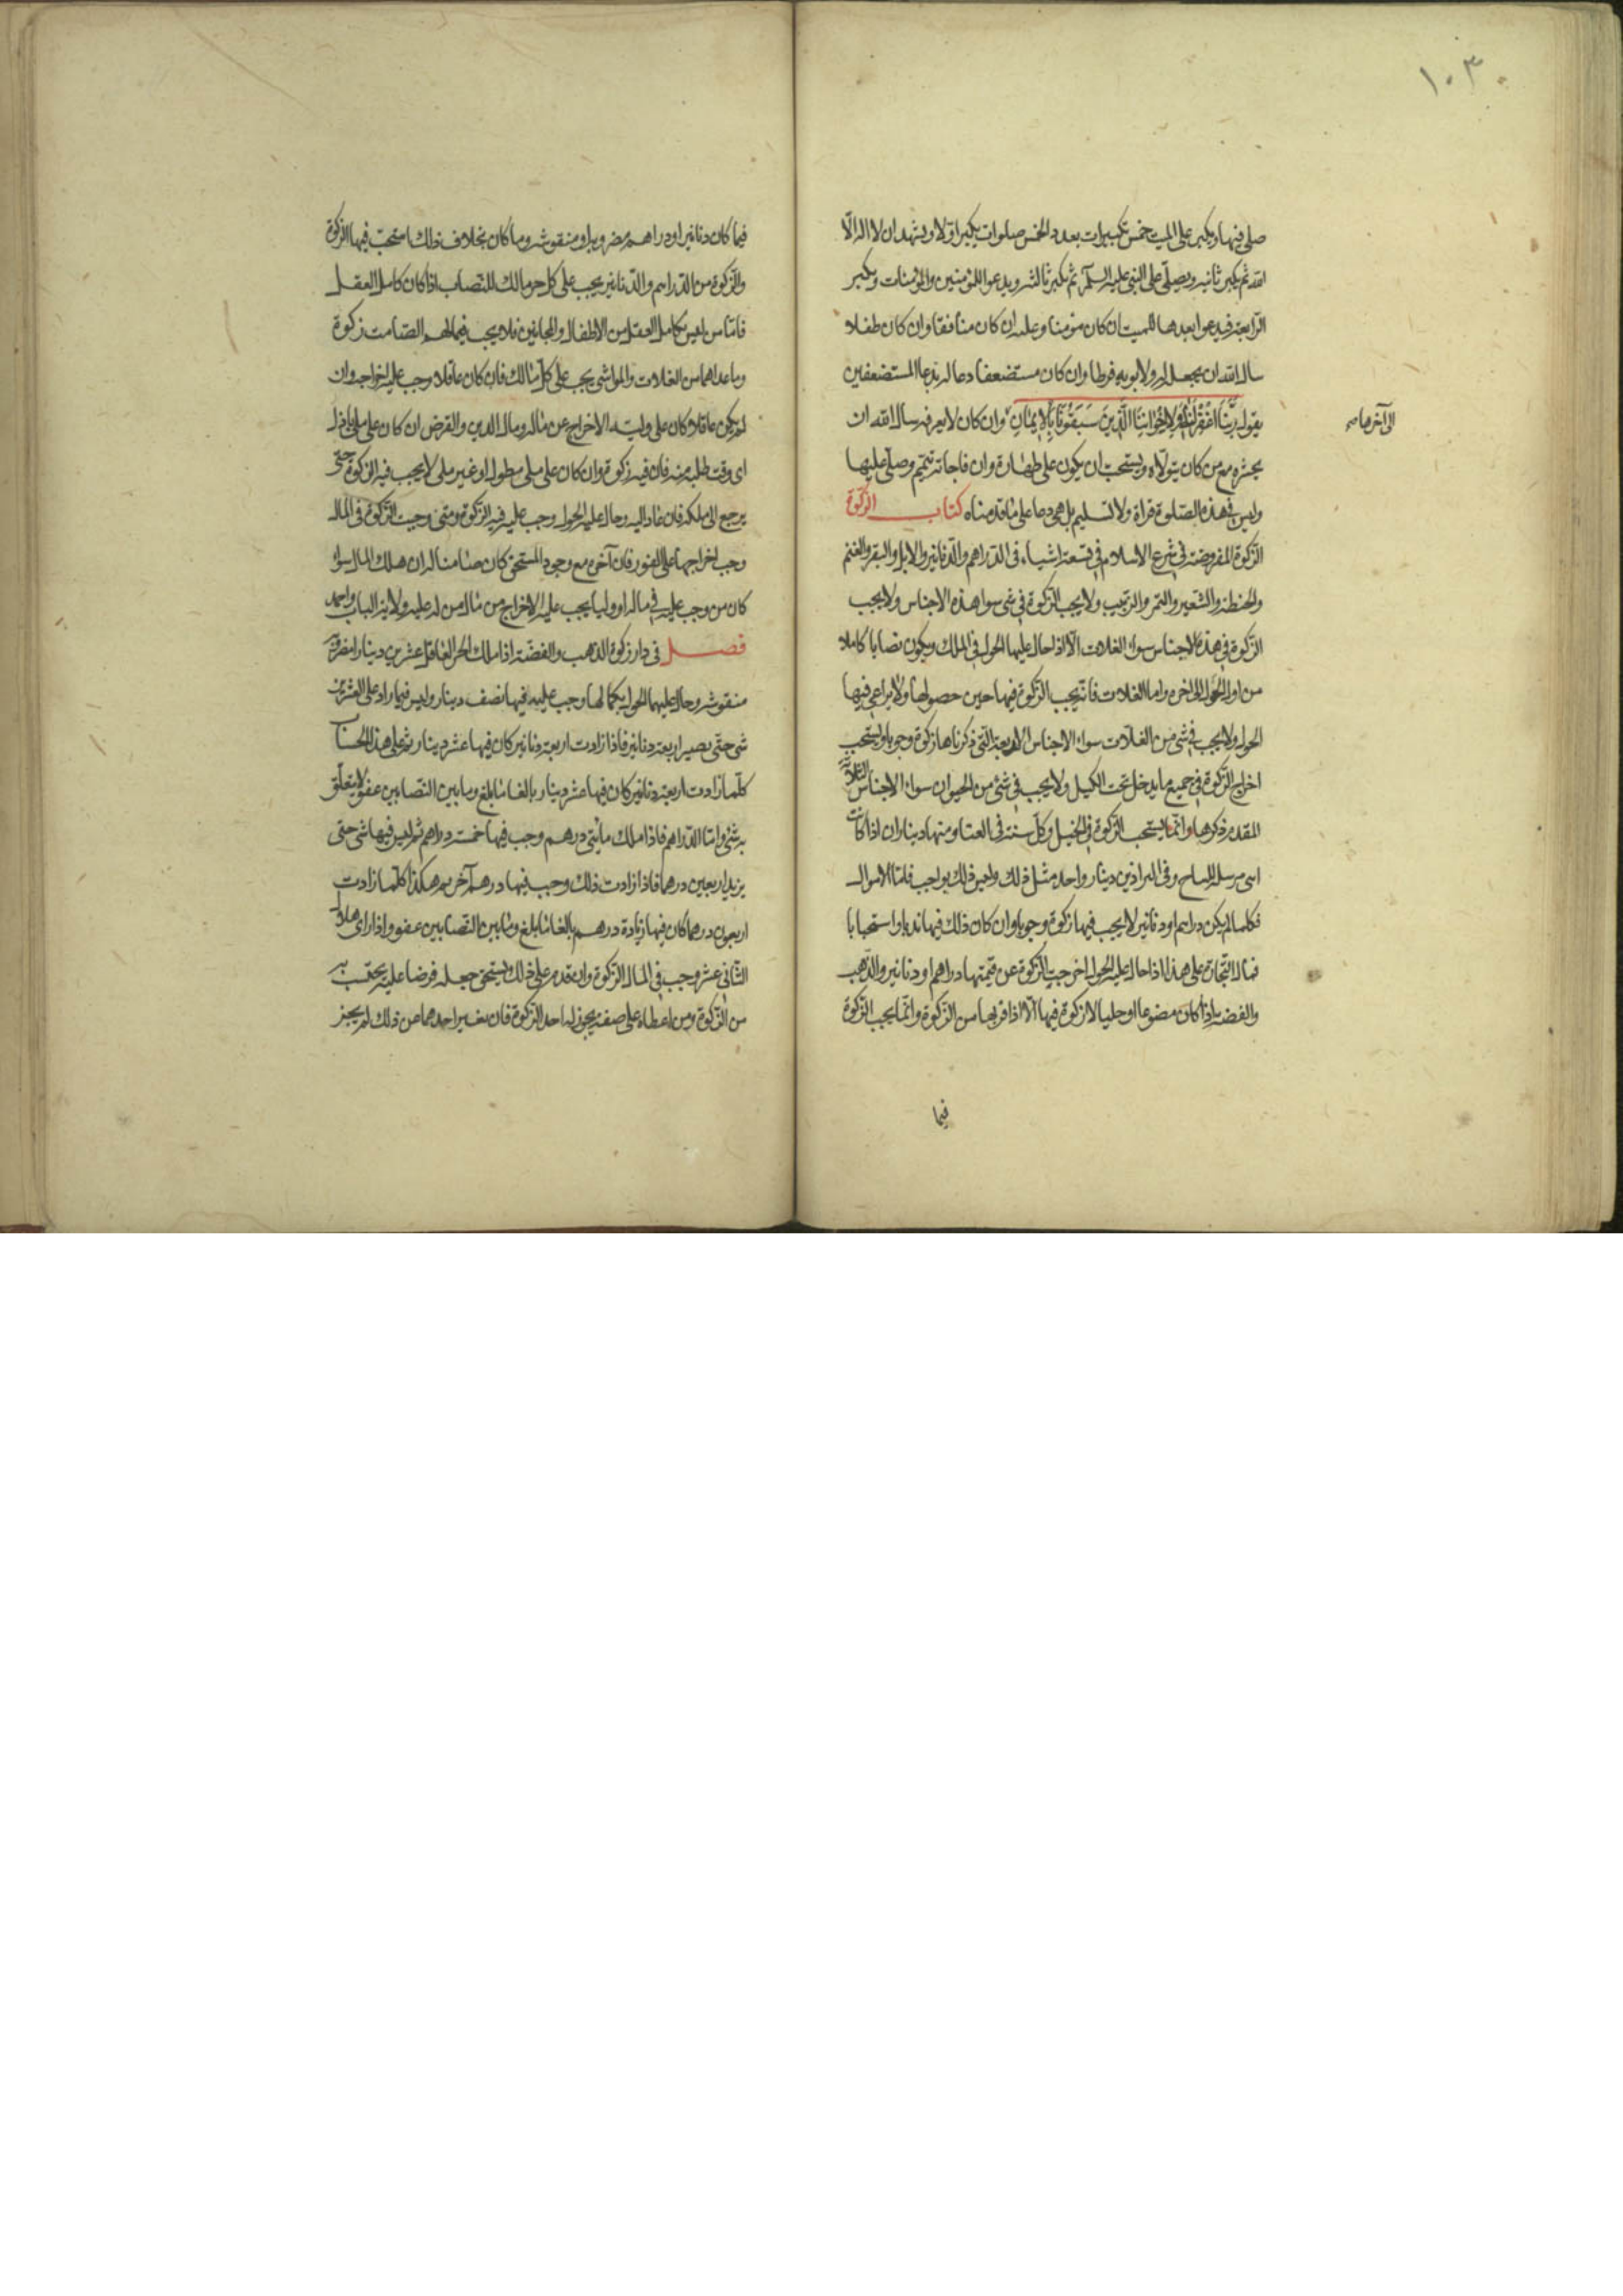 ١٠٣
صلى فيها ويكبر على الميت خمس تكبيرات بعدد الخمس صلوات يكبر اولا ويشهد ان لا اله الّا
الله ثم يكبر ثانية ويصلّى على النبى عليه السلم ثم يكبر ثالثة ويدعو اللمؤمنين والمؤمنات ويكبر
الرّابعة فيدعوا بعدها للميت ان كان مؤمنا وعليه ان كان منافقا وان كان طفلا
سال الله ان يجعله له ولابويه فرطا وان كان مستضعفا دعا له بدعا المستضعفين
يقول رَبَّنَا اغْفِرْ لَنَا وَلِإِخْوَانِنَا الَّذِينَ سَبَقُونَا بِالْإِيمَانِ وان كان لا يعرفه سال الله ان
الى آخرها صح
يحشره مع من كان يتولّاه ويستحب ان يكون على طهارة وان فاجاته تيمّم وصلّى عليها
وليس فى هذه الصّلوة قراة ولا تسليم بل هى دعا على ما قدمناه كتاب الزكوة
الزّكوة المفروضة فى شرع الاسلام فى تسعة اشياء فى الدّراهم والدّنانير والابل والبقر والغنم
والحنطة والشّعير والتمر والزّبيب ولا يجب الزّكوة فى شى سوا هذه الاجناس ولا يجب
الزّكوة فى هذه الاجناس سوا الغلات الّا اذا حال عليها الحول فى الملك ويكون نصابا كاملا
من اول الحول الى اخره واما الغلات فانّه يجب الزّكوة فيها حين حصولها ولا يراعى فيها
الحول ولا يجب فى شى من الغلّات سوا الاجناس الاربعة التى ذكرناها زكوة وجوبا ويستحب
اخراج الزّكوة فى جميع ما يدخل تحت الكيل ولا يجب فى شئ من الحيوان سوا الاجناس الثلاثة
المقدم ذكرها وانّما يستحب الزّكوة فى الخيل وكلّ سنة فى العتاو منها ديناران اذا كانت
مرسلة وفى البراذين دينار واحد مثل ذلك وليس ذلك بواجب فامّا الاموال
فكلما لم يكن دراهم او دنانير لا يجب فيها زكوة وجوبا وان كان ذلك فيها ندبا واستحبابا
فمال التجارة على هذا اذا حال عليه الحول اخرجت الزّكوة عن قيمتها دراهم او دنانير والذّهب
والفضة اذا كان مصوغا او حليا لا زكوة فيها الّا اذا فر بها من الزّكوة وانّما يجب الزّكوة
فيما
فيما كان دنانير او دراهم مضروبة او منقوشة وما كان بخلاف ذلك استحبّ فيها الزكوة
والزّكوة من الدّراهم والدّنانير يجب على كل حر مالك للنصاب اذا كان كامل العقل
فامّا من ليس بكامل العقل من الاطفال والمجانين فلا يجب فيما لهم الصّامت زكوة
وما عداهما من الغلات والمواشى يجب على كلّ مالك فان كان عاقلا وجب عليه اخراجه وان
لم يكن عاقلا كان على وليّه الاخراج عن ماله ومال الدين والقرض ان كان على ملى باذل
اى وقت طلبه منه فان فيه زكوة وان كان على ملى مطول او غير ملى لا يجب فيه الزكوة حتّى
يرجع الى ملكه فان عاد اليه وحال عليه الحول وجب عليه فيه الزّكوة ومتى وجبت الزّكوة فى المال
وجب اخراجها على الفور فان آخره مع وجود المستحق كان ضامنا له ان هلك المال سوا
كان من وجب عليه فى ماله او وليا يجب عليه الاخراج من مال من له عليه ولاية الباب واحد
فصل فى زكوة الذهب والفضّة اذا ملك الحر العاقل عشرين دينارا مضروبة
منقوشة وحال عليهما الحول بكمالها وجب عليه فيها نصف دينار وليس فيما زاد على العشرين
شى حتّى يصير اربعة دنانير فاذا زادت اربعة دنانير كان فيها عشر دينار ثم على هذا الحساب
كلّما زادت اربعة دنانير كان فيها عشر دينار بالغا ما بلغ وما بين النصابين عفو لا يتعلّق
به شئ وامّا الدّراهم فاذا ملك مائتى درهم وجب فيها خمسة دراهم ثم ليس فيها شى حتى
يزيد اربعين درهما فاذا زادت ذلك وجب فيها درهم آخر ثم هكذا كلّما زادت
اربعون درهما كان فيها زيادة درهم بالغا ما بلغ وما بين النّصابين عفو واذا راى هلال
الثّانى عشر وجب فى المال الزّكوة وان قدم على ذلك يستحق جعله قرضا عليه يحتسب به
من الزّكوة ومن اعطاه على صفة يجوز له اخذ الزّكوة فان تغير احدهما عن ذلك لم يجز